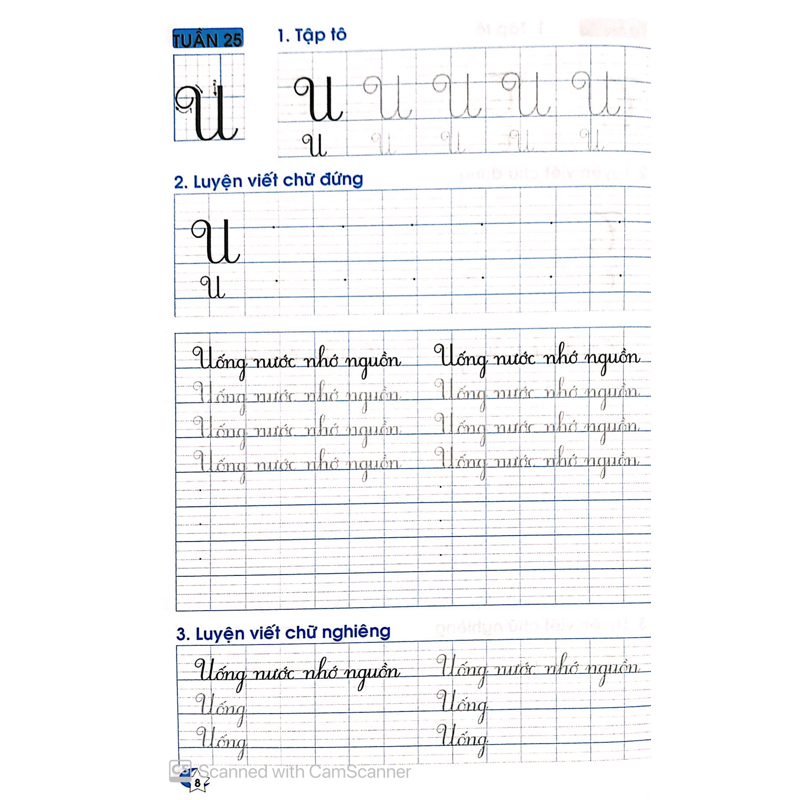 TUẦN 25
1. Tập tô
U
U U U U U
U U U U U
2. Luyện viết chữ đứng
U
U
Uống nước nhớ nguồn Uống nước nhớ nguồn
Uống nước nhớ nguồn Uống nước nhớ nguồn
Uống nước nhớ nguồn Uống nước nhớ nguồn
Uống nước nhớ nguồn Uống nước nhớ nguồn
3. Luyện viết chữ nghiêng
Uống nước nhớ nguồn Uống nước nhớ nguồn
Uống Uống
Uống Uống
CS Scanned with CamScanner
8